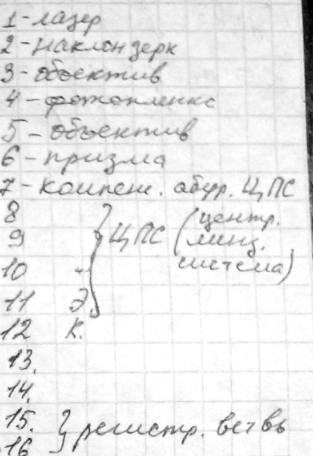 1 - лазер
2 - наклон зерк
3 - объектив
4 - фотопленка
5 - объектив
6 - призма
7 - компенс. абер. ЦПС
8
9 ЦПС (центр. линз. система)
10 "
11 Э
12 К.
13.
14.
15. регистр. ветвь
16